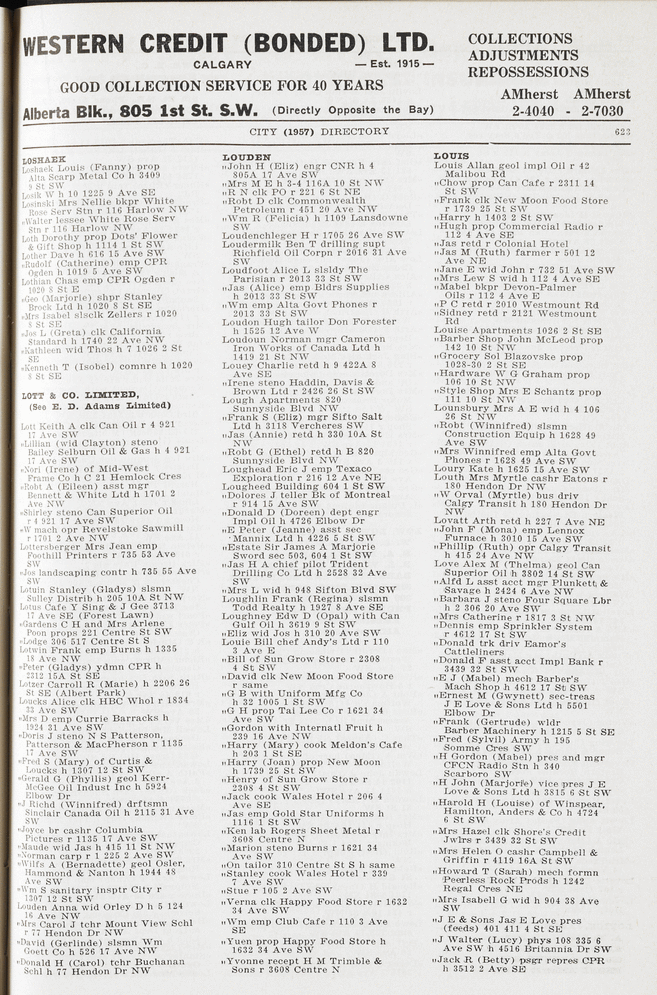 WESTERN CREDIT (BONDED) LTD.
CALGARY — Est. 1915 —
GOOD COLLECTION SERVICE FOR 40 YEARS
Alberta Blk., 805 1st St. S.W. (Directly Opposite the Bay)
COLLECTIONS
ADJUSTMENTS
REPOSSESSIONS
AMherst AMherst
2-4040 - 2-7030
CITY (1957) DIRECTORY 623
LOSHAEK
Loshaek Louis (Fanny) prop
Alta Scarp Metal Co h 3409
9 St SW
Losik W h 10 1225 9 Ave SE
Losinski Mrs Nellie bkpr White
Rose Serv Stn r 116 Harlow NW
„Walter lessee White Rose Serv
Stn r 116 Harlow NW
Loth Dorothy prop Dots' Flower
& Gift Shop h 1114 1 St SW
Lother Dave h 616 15 Ave SW
„Rudolf (Catherine) emp CPR
Ogden h 1019 5 Ave SW
Lothian Chas emp CPR Ogden r
1020 8 St E
„Geo (Marjorie) shpr Stanley
Brock Ltd h 1020 8 St SE
„Mrs Isabel slsclk Zellers r 1020
8 St SE
„Jos L (Greta) clk California
Standard h 1740 22 Ave NW
„Kathleen wid Thos h 7 1026 2 St
SE
„Kenneth T (Isobel) comnre h 1020
8 St SE
LOTT & CO. LIMITED,
(See E. D. Adams Limited)
Lott Keith A clk Can Oil r 4 921
17 Ave SW
„Lillian (wid Clayton) steno
Bailey Selburn Oil & Gas h 4 921
17 Ave SW
„Nori (Irene) of Mid-West
Frame Co h C 21 Hemlock Cres
„Robt A (Eileen) asst mgr
Bennett & White Ltd h 1701 2
Ave NW
„Shirley steno Can Superior Oil
r 4 921 17 Ave SW
„W mach opr Revelstoke Sawmill
r 1701 2 Ave NW
Lottersberger Mrs Jean emp
Foothill Printers r 735 53 Ave
SW
„Jos landscaping contr h 735 55 Ave
SW
Lotuin Stanley (Gladys) slsmn
Sulley Distrib h 205 10A St NW
Lotus Cafe Y Sing & J Gee 3713
17 Ave SE (Forest Lawn)
„Gardens C H and Mrs Arlene
Poon props 221 Centre St SW
„Lodge 306 517 Centre St S
Lotwin Frank emp Burns h 1335
18 Ave NW
„Peter (Gladys) ydmn CPR h
2312 15A St SE
Lotzer Carroll R (Marie) h 2206 26
St SE (Albert Park)
Loucks Alice clk HBC Whol r 1834
33 Ave SW
„Mrs D emp Currie Barracks h
1924 31 Ave SW
„Doris J steno N S Patterson,
Patterson & MacPherson r 1135
17 Ave SW
„Fred S (Mary) of Curtis &
Loucks h 1307 12 St SW
„Gerald G (Phyllis) geol Kerr-
McGee Oil Indust Inc h 5924
Elbow Dr
„J Richd (Winnifred) drftsmn
Sinclair Canada Oil h 2115 31 Ave
SW
„Joyce br cashr Columbia
Pictures r 1135 17 Ave SW
„Maude wid Jas h 415 11 St NW
„Norman carp r 1 225 2 Ave SW
„Wilfs A (Bernadette) geol Osler,
Hammond & Nanton h 1944 48
Ave SW
„Wm S sanitary insptr City r
1307 12 St SW
Louden Anna wid Orley D h 5 124
16 Ave NW
„Mrs Carol J tchr Mount View Schl
r 77 Hendon Dr NW
„David (Gerlinde) slsmn Wm
Goett Co h 526 17 Ave NW
„Donald H (Carol) tchr Buchanan
Schl h 77 Hendon Dr NW
LOUDEN
„John H (Eliz) engr CNR h 4
805A 17 Ave SW
„Mrs M E h 3-4 116A 10 St NW
„R N clk PO r 221 6 St NE
„Robt D clk Commonwealth
Petroleum r 451 20 Ave NW
„Wm R (Felicia) h 1109 Lansdowne
SW
Loudenchleger H r 1705 26 Ave SW
Loudermilk Ben T drilling supt
Richfield Oil Corpn r 2016 31 Ave
SW
Loudfoot Alice L slsldy The
Parisian r 2013 33 St SW
„Jas (Alice) emp Bldrs Supplies
h 2013 33 St SW
„Wm emp Alta Govt Phones r
2013 33 St SW
Loudon Hugh tailor Don Forester
h 1525 12 Ave W
Loudoun Norman mgr Cameron
Iron Works of Canada Ltd h
1419 21 St NW
Louey Charlie retd h 9 422A 8
Ave SE
„Irene steno Haddin, Davis &
Brown Ltd r 2426 26 St SW
Lough Apartments 820
Sunnyside Blvd NW
„Frank S (Eliz) mgr Sifto Salt
Ltd h 3118 Vercheres SW
„Jas (Annie) retd h 330 10A St
NW
„Robt G (Ethel) retd h B 820
Sunnyside Blvd NW
Loughead Eric J emp Texaco
Exploration r 216 12 Ave NE
Lougheed Building 604 1 St SW
„Dolores J teller Bk of Montreal
r 914 15 Ave SW
„Donald D (Doreen) dept engr
Impl Oil h 4726 Elbow Dr
„E Peter (Jeanne) asst sec
Mannix Ltd h 4226 5 St SW
„Estate Sir James A Marjorie
Sword sec 503, 604 1 St SW
„Jas H A chief pilot Trident
Drilling Co Ltd h 2528 32 Ave
SW
„Mrs L wid h 948 Sifton Blvd SW
Loughlin Frank (Regina) slsmn
Todd Realty h 1927 8 Ave SE
Loughney Edw D (Opal) with Can
Gulf Oil h 3619 9 St SW
„Eliz wid Jos h 310 20 Ave SW
Louie Bill chef Andy's Ltd r 110
3 Ave E
„Bill of Sun Grove Store r 2308
4 St SW
„David clk New Moon Food Store
r same
„G B with Uniform Mfg Co
h 32 1005 1 St SW
„G H prop Tai Lee Co r 1621 34
Ave SW
„Gordon with Internatl Fruit h
239 16 Ave NW
„Harry (Mary) cook Meldon's Cafe
h 203 1 St SE
„Harry (Joan) prop New Moon
h 1739 25 St SW
„Henry of Sun Grove Store r
2308 4 St SW
„Jack cook Wales Hotel r 206 4
Ave SE
„Jas emp Gold Star Uniforms h
1116 1 St SW
„Ken lab Rogers Sheet Metal r
3608 Centre N
„Marion steno Burns r 1621 34
Ave SW
„On tailor 310 Centre St S h same
„Stanley cook Wales Hotel r 339
7 Ave SW
„Stue r 105 2 Ave SW
„Verna clk Happy Food Store r 1632
34 Ave SW
„Wm emp Club Cafe r 110 3 Ave
SE
„Yuen prop Happy Food Store h
1632 34 Ave SW
„Yvonne recept H M Trimble &
Sons r 3608 Centre N
LOUIS
Louis Allan geol impl Oil r 42
Malibou Rd
„Chow prop Can Cafe r 2311 14
St SW
„Frank clk New Moon Food Store
r 1739 25 St SW
„Harry h 1403 2 St SW
„Hugh prop Commercial Radio r
112 4 Ave SE
„Jas retd r Colonial Hotel
„Jas M (Ruth) farmer r 501 12
Ave NE
„Jane E wid John r 732 51 Ave SW
„Mrs Lew S wid h 112 4 Ave SE
„Mabel bkpr Devon-Palmer
Oils r 112 4 Ave E
„P C retd r 2010 Westmount Rd
„Sidney retd r 2121 Westmount
Rd
Louise Apartments 1026 2 St SE
„Barber Shop John McLeod prop
142 10 St NW
„Grocery Sol Blazovske prop
1028-30 2 St SE
„Hardware W G Graham prop
106 10 St NW
„Style Shop Mrs E Schantz prop
111 10 St NW
Lounsbury Mrs A E wid h 4 106
26 St NW
„Robt (Winnifred) slsmn
Construction Equip h 1628 49
Ave SW
„Mrs Winnifred emp Alta Govt
Phones r 1628 49 Ave SW
Loury Kate h 1625 15 Ave SW
Louth Mrs Myrtle cashr Eatons r
180 Hendon Dr NW
„W Orval (Myrtle) bus driv
Calgy Transit h 180 Hendon Dr
NW
Lovatt Arth retd h 227 7 Ave NE
„John F (Mona) emp Lennox
Furnace h 3010 15 Ave SW
„Phillip (Ruth) opr Calgy Transit
h 415 24 Ave NW
Love Alex M (Thelma) geol Can
Superior Oil h 3802 14 St SW
„Alfd L asst acct mgr Plunkett, &
Savage h 2424 6 Ave NW
„Barbara J steno Four Square Lbr
h 2 306 20 Ave SW
„Mrs Catherine r 1817 3 St NW
„Dennis emp Sprinkler System
r 4612 17 St SW
„Donald trk driv Eamor's
Cattleliners
„Donald F asst acct Impl Bank r
3439 32 St SW
„E J (Mabel) mech Barber's
Mach Shop h 4612 17 St SW
„Ernest M (Gwynett) sec-treas
J E Love & Sons Ltd h 5501
Elbow Dr
„Frank (Gertrude) wldr
Barber Machinery h 1215 5 St SE
„Fred (Sylvil) Army h 195
Somme Cres SW
„H Gordon (Mabel) pres and mgr
CFCN Radio Stn h 340
Scarboro SW
„H John (Marjorie) vice pres J E
Love & Sons Ltd h 3815 6 St SW
„Harold H (Louise) of Winspear,
Hamilton, Anders & Co h 4724
6 St SW
„Mrs Hazel clk Shore's Credit
Jwlrs r 3439 32 St SW
„Mrs Helen O cashr Campbell &
Griffin r 4119 16A St SW
„Howard T (Sarah) mech formn
Peerless Rock Prods h 1242
Regal Cres NE
„Mrs Isabell G wid h 904 38 Ave
SW
„J E & Sons Jas E Love pres
(feeds) 401 411 4 St SE
„J Walter (Lucy) phys 108 335 6
Ave SW h 4516 Britannia Dr SW
„Jack R (Betty) psgr repres CPR
h 3512 2 Ave SE